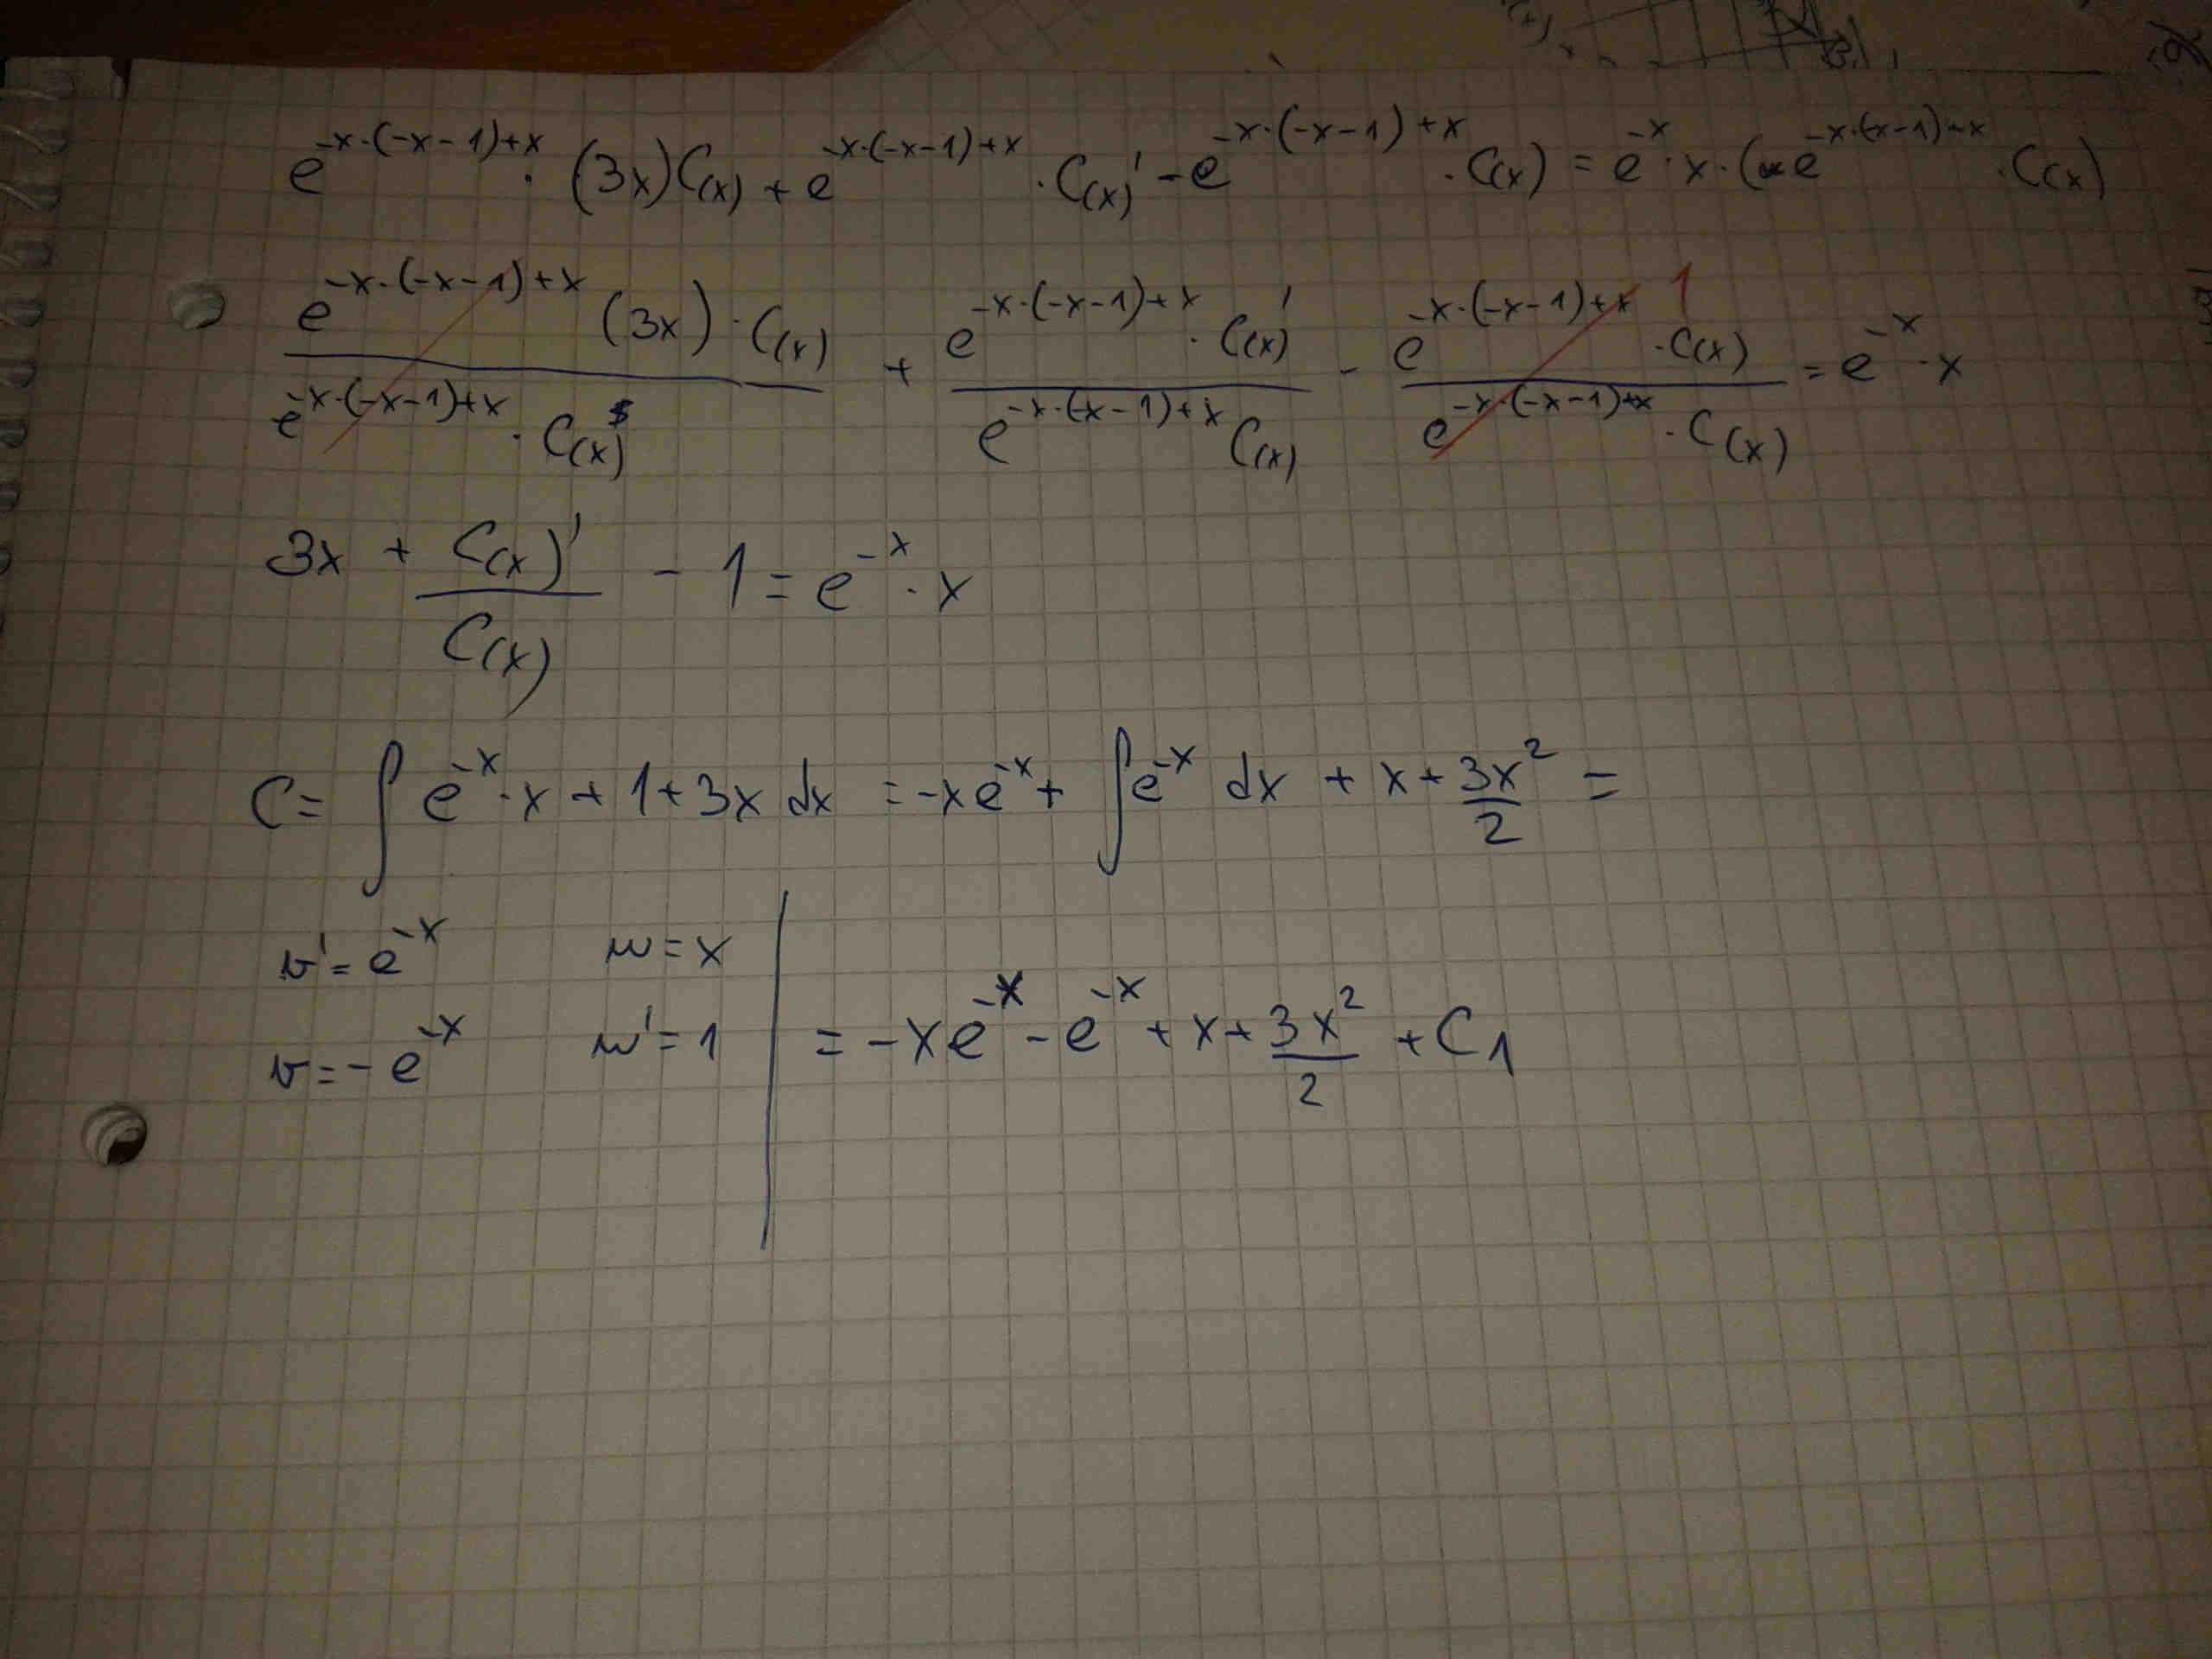 e^{-x·(-x-1)+x} · (3x)C(x) + e^{-x·(-x-1)+x} · C(x)' - e^{-x·(-x-1)+x} · C(x) = e^{-x} · x · (e^{-x·(x-1)-x} · C(x)
\frac{e^{-x·(-x-1)+x} (3x) · C(x)}{e^{-x·(-x-1)+x} · C(x)} + \frac{e^{-x·(-x-1)+x} · C(x)'}{e^{-x·(-x-1)+x} C(x)} - \frac{e^{-x·(-x-1)+x} · C(x)}{e^{-x·(-x-1)+x} · C(x)} 1 = e^{-x} · x
3x + \frac{C(x)'}{C(x)} - 1 = e^{-x} · x
C = ∫ e^{-x} · x + 1 + 3x dx = -xe^{-x} + ∫ e^{-x} dx + x + \frac{3x^2}{2} =
v' = e^{-x} u = x
v = -e^{-x} u' = 1 | = -xe^{-x} - e^{-x} + x + \frac{3x^2}{2} + C1